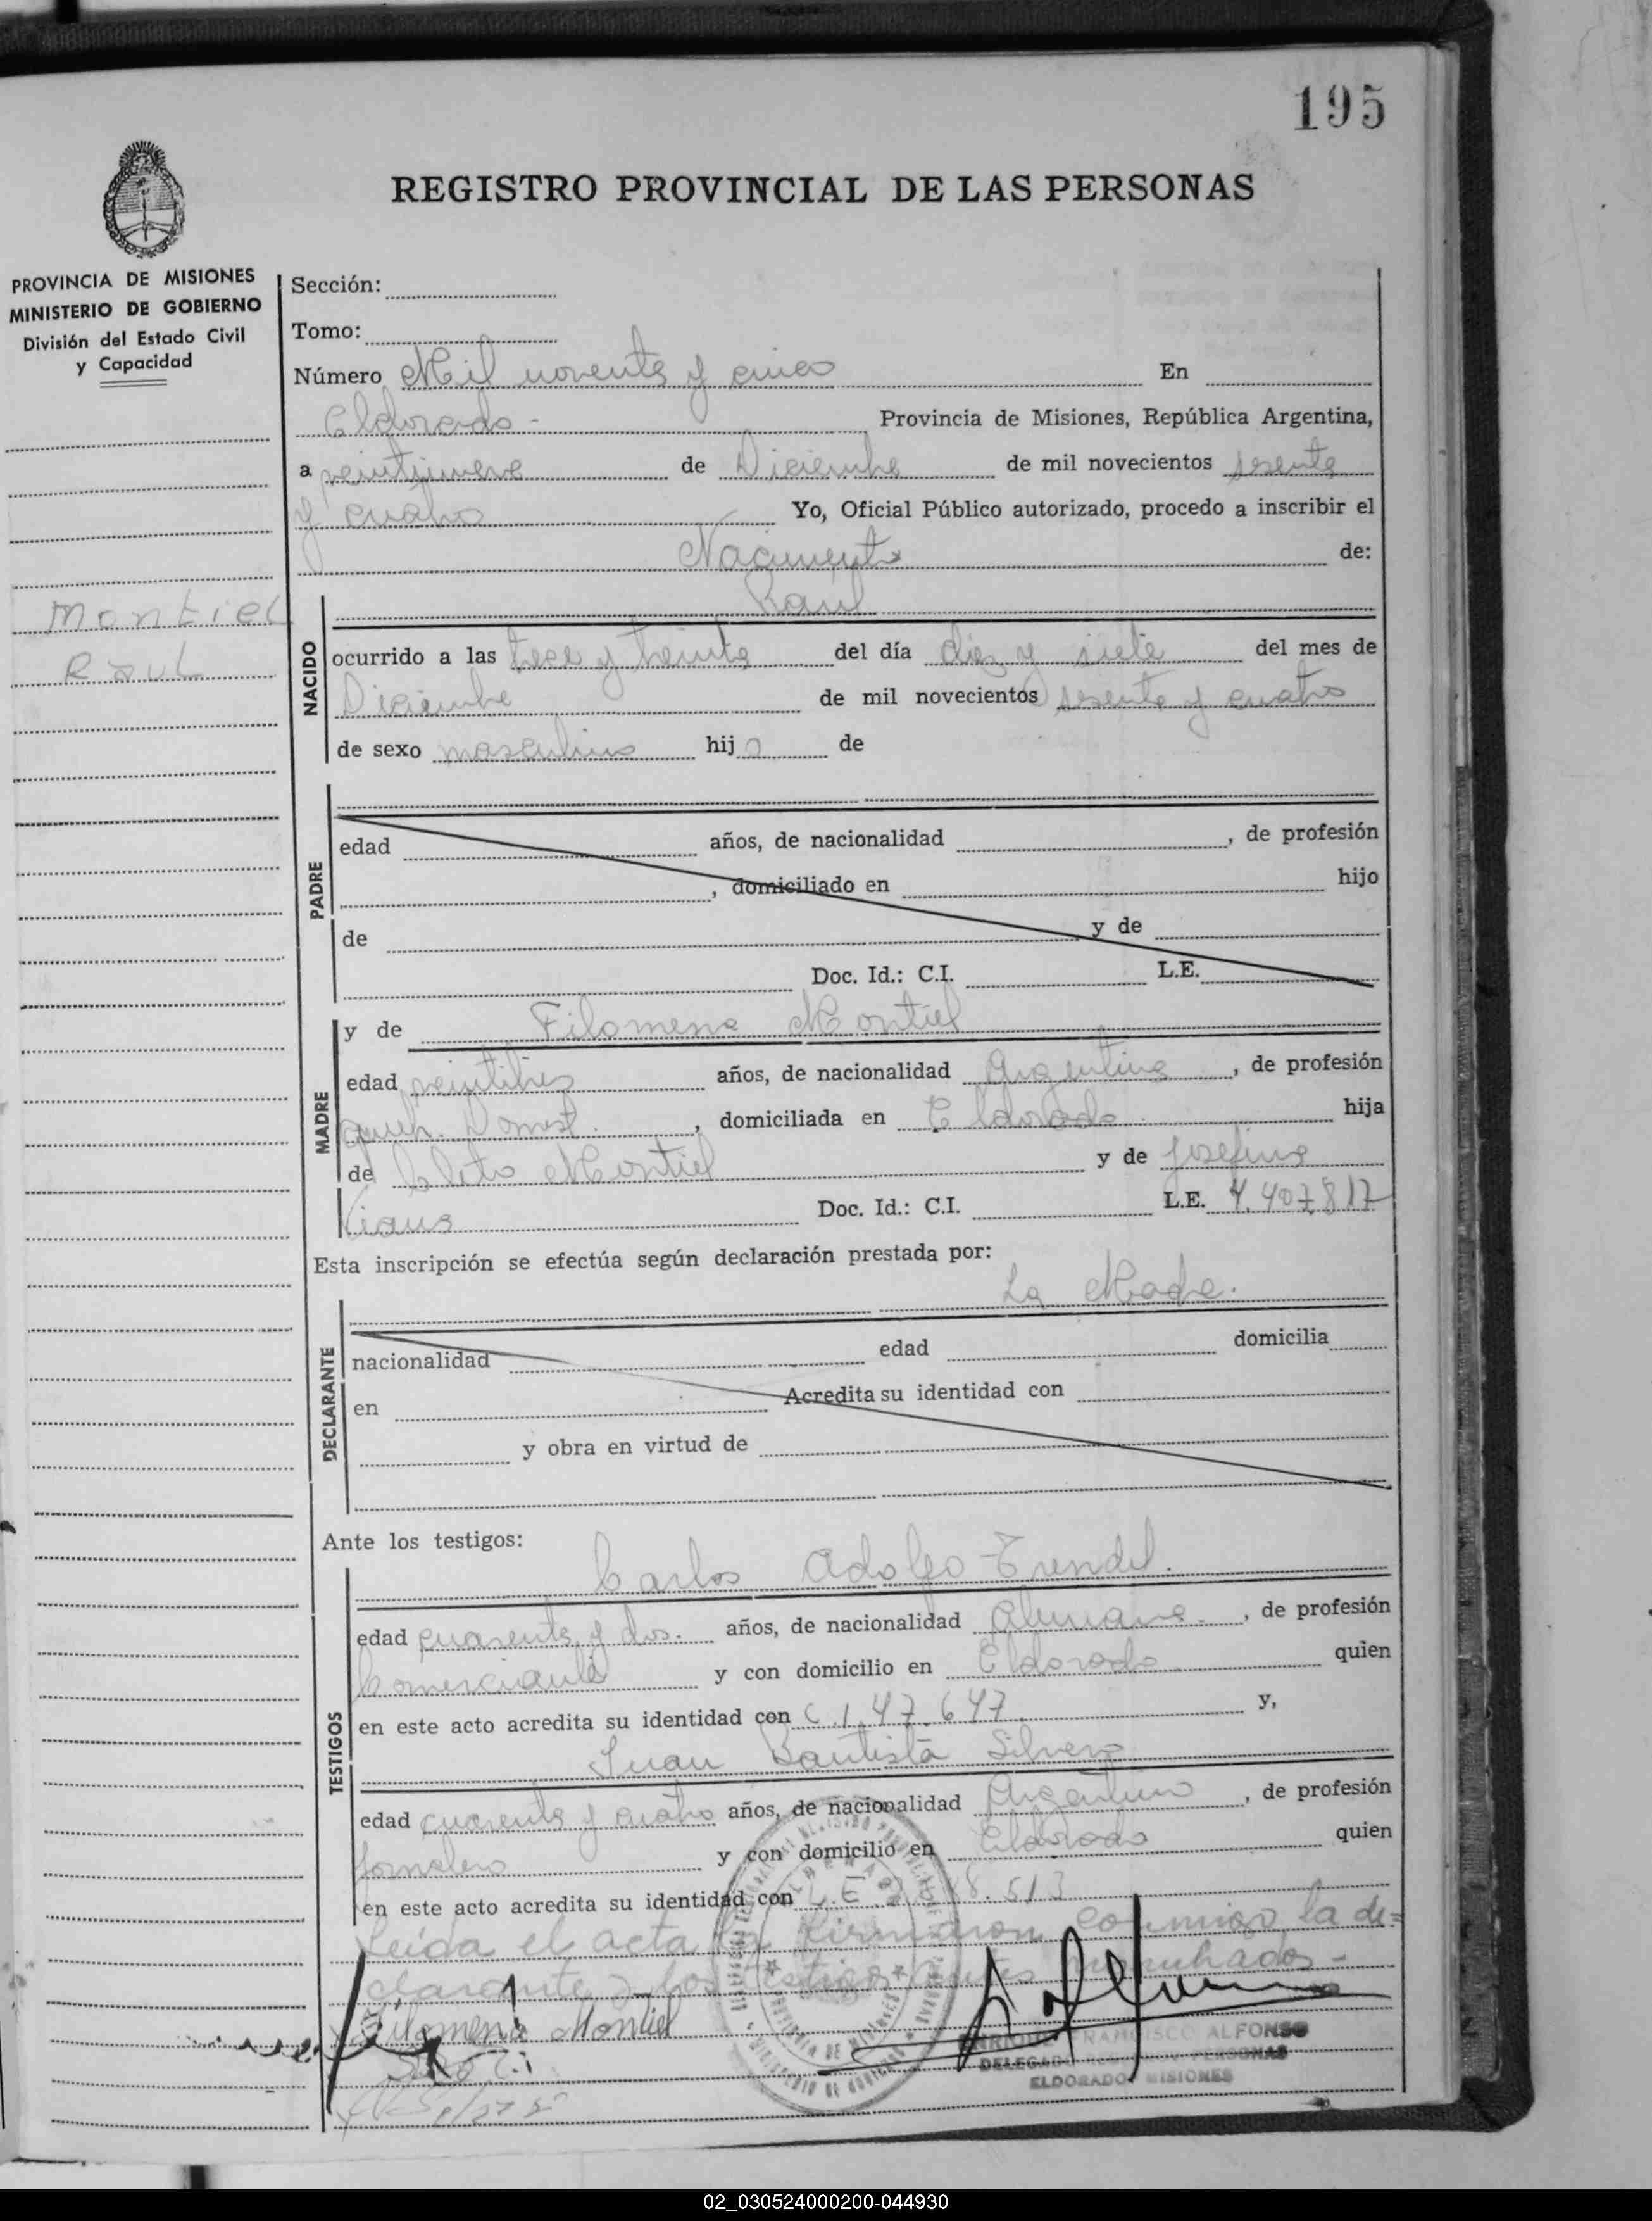 195
REGISTRO PROVINCIAL DE LAS PERSONAS
PROVINCIA DE MISIONES
MINISTERIO DE GOBIERNO
División del Estado Civil
y Capacidad
Montiel
Raul
Sección:
Tomo:
Número Mil noventa y cinco En
Eldorado - Provincia de Misiones, República Argentina,
a veintinueve de Diciembre de mil novecientos sesenta
y cuatro Yo, Oficial Público autorizado, procedo a inscribir el
Nacimiento de:
NACIDO
Raul
ocurrido a las trece y treinta del día diez y siete del mes de
Diciembre de mil novecientos sesenta y cuatro
de sexo masculino hijo de
PADRE
edad años, de nacionalidad , de profesión
, domiciliado en hijo
de y de
Doc. Id.: C.I. L.E.
MADRE
y de Filomena Montiel
edad veintitres años, de nacionalidad Argentina , de profesión
queh. Domest. , domiciliada en Eldorado hija
de Cleto Montiel y de Josefina
Viana Doc. Id.: C.I. L.E. 4.407.817
Esta inscripción se efectúa según declaración prestada por:
La Madre.
DECLARANTE
nacionalidad edad domicilia
en Acredita su identidad con
y obra en virtud de
Ante los testigos:
TESTIGOS
Carlos Adolfo Trendel.
edad cuarenta y dos. años, de nacionalidad Alemana. , de profesión
Comerciante y con domicilio en Eldorado quien
en este acto acredita su identidad con C.I. 47.647 y,
Juan Bautista Silvero
edad cuarenta y cuatro años, de nacionalidad Argentino , de profesión
jornalero y con domicilio en Eldorado quien
en este acto acredita su identidad con L.E. .513
Leida el acta la firmaron conmigo la de=
clarante y los testigos -
Filomena Montiel
ENRIQUE FRANCISCO ALFONSO
DELEGADO PERSONAS
ELDORADO MISIONES
02_030524000200-044930